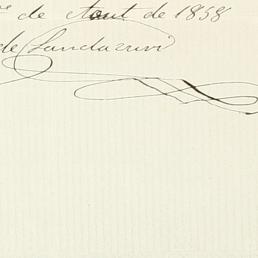 de Aout de 1858
de Landazuri